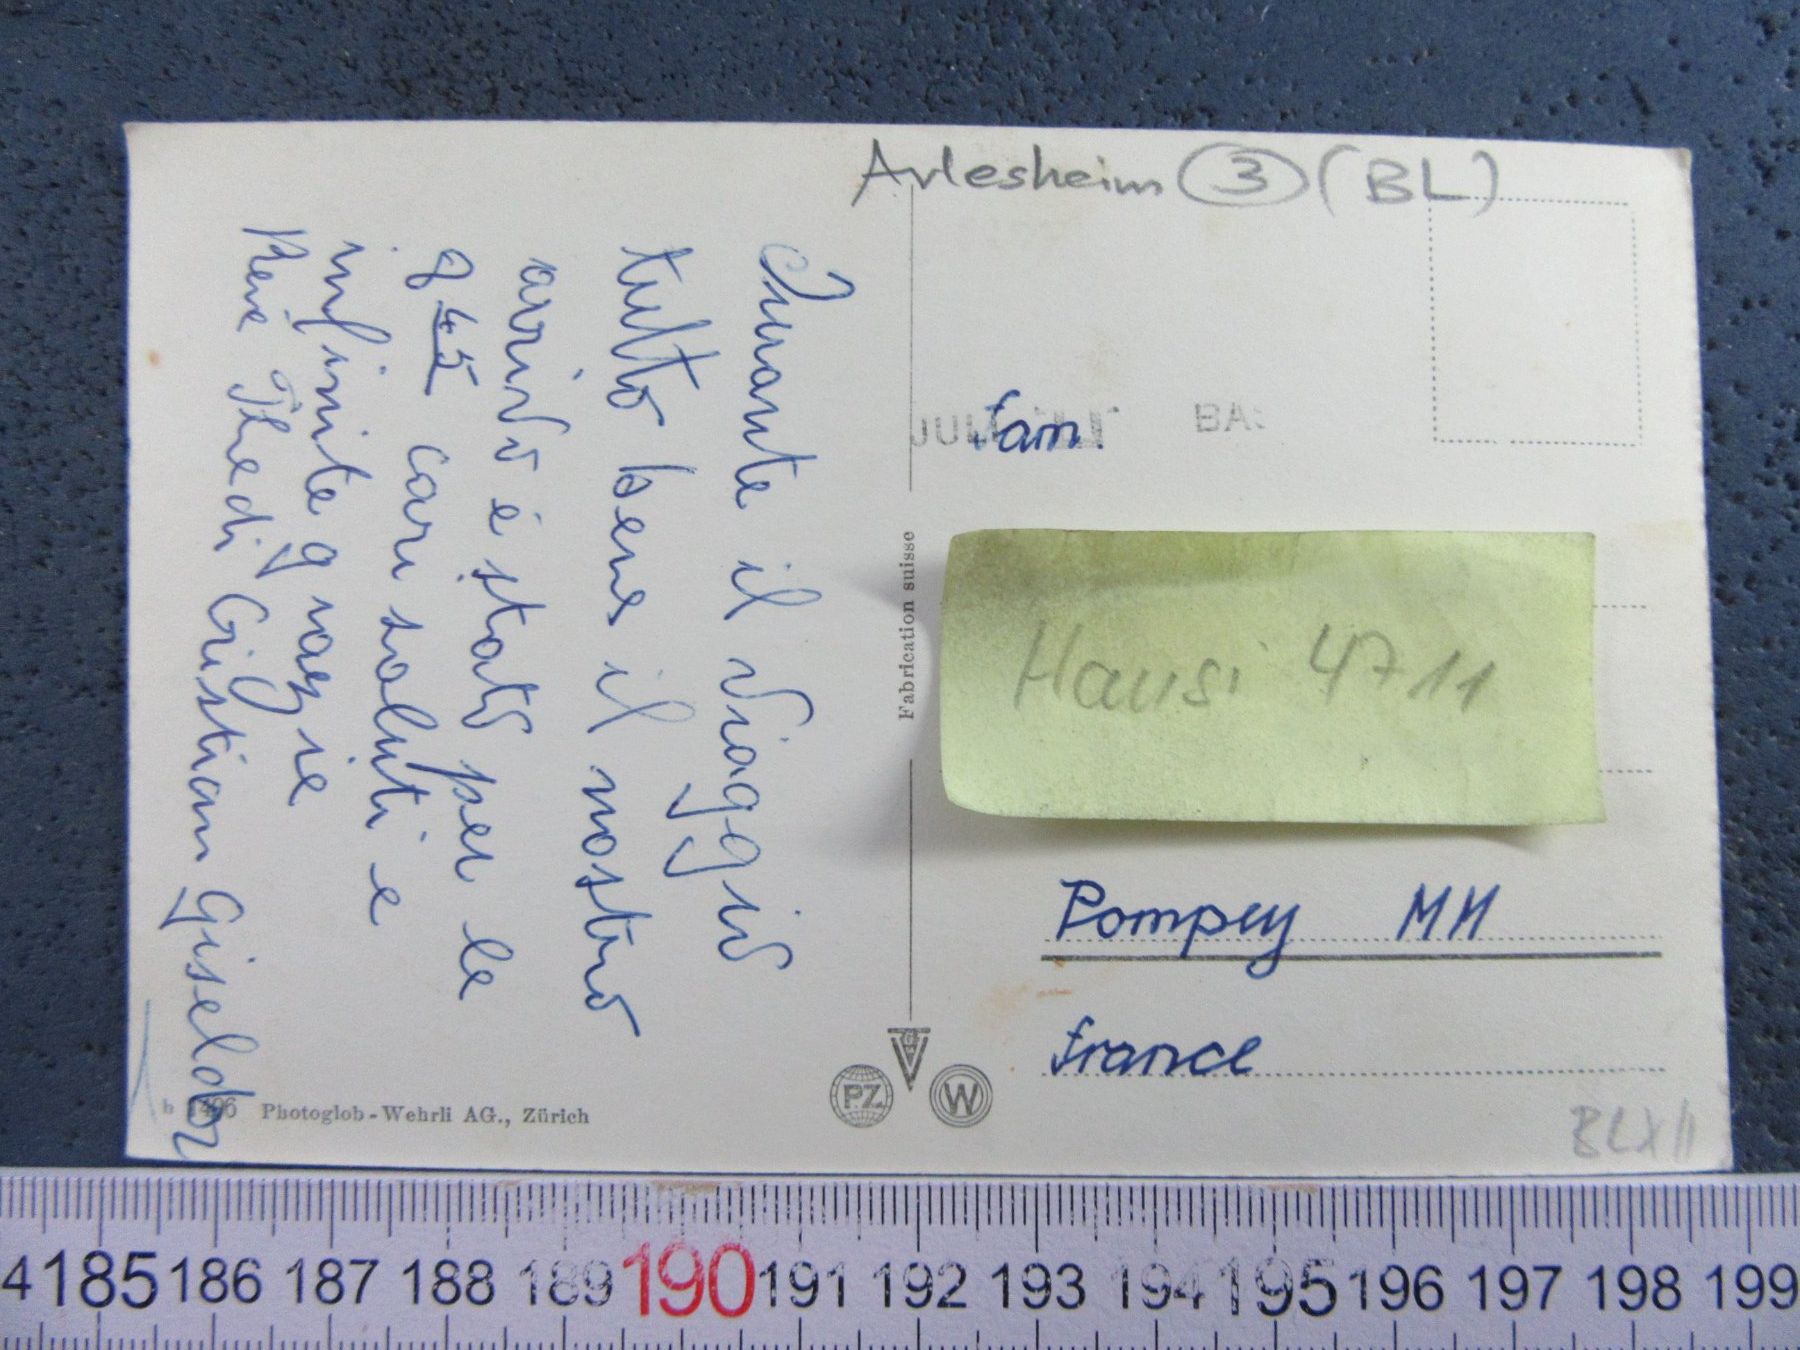 Arlesheim 3 (BL)
Durante il viaggio
tutto bene il nostro
arrivo é stato per le
9 45 cari saluti e
infinite grazie
René Thedi Cristian Giseldor
JUL
BA
Fam.
Fabrication suisse
Hansi 4711
Pompey MM
France
PZ
W
b 1496 Photoglob-Wehrli AG., Zürich
BLXII
4 185 186 187 188 189 190 191 192 193 194 195 196 197 198 199